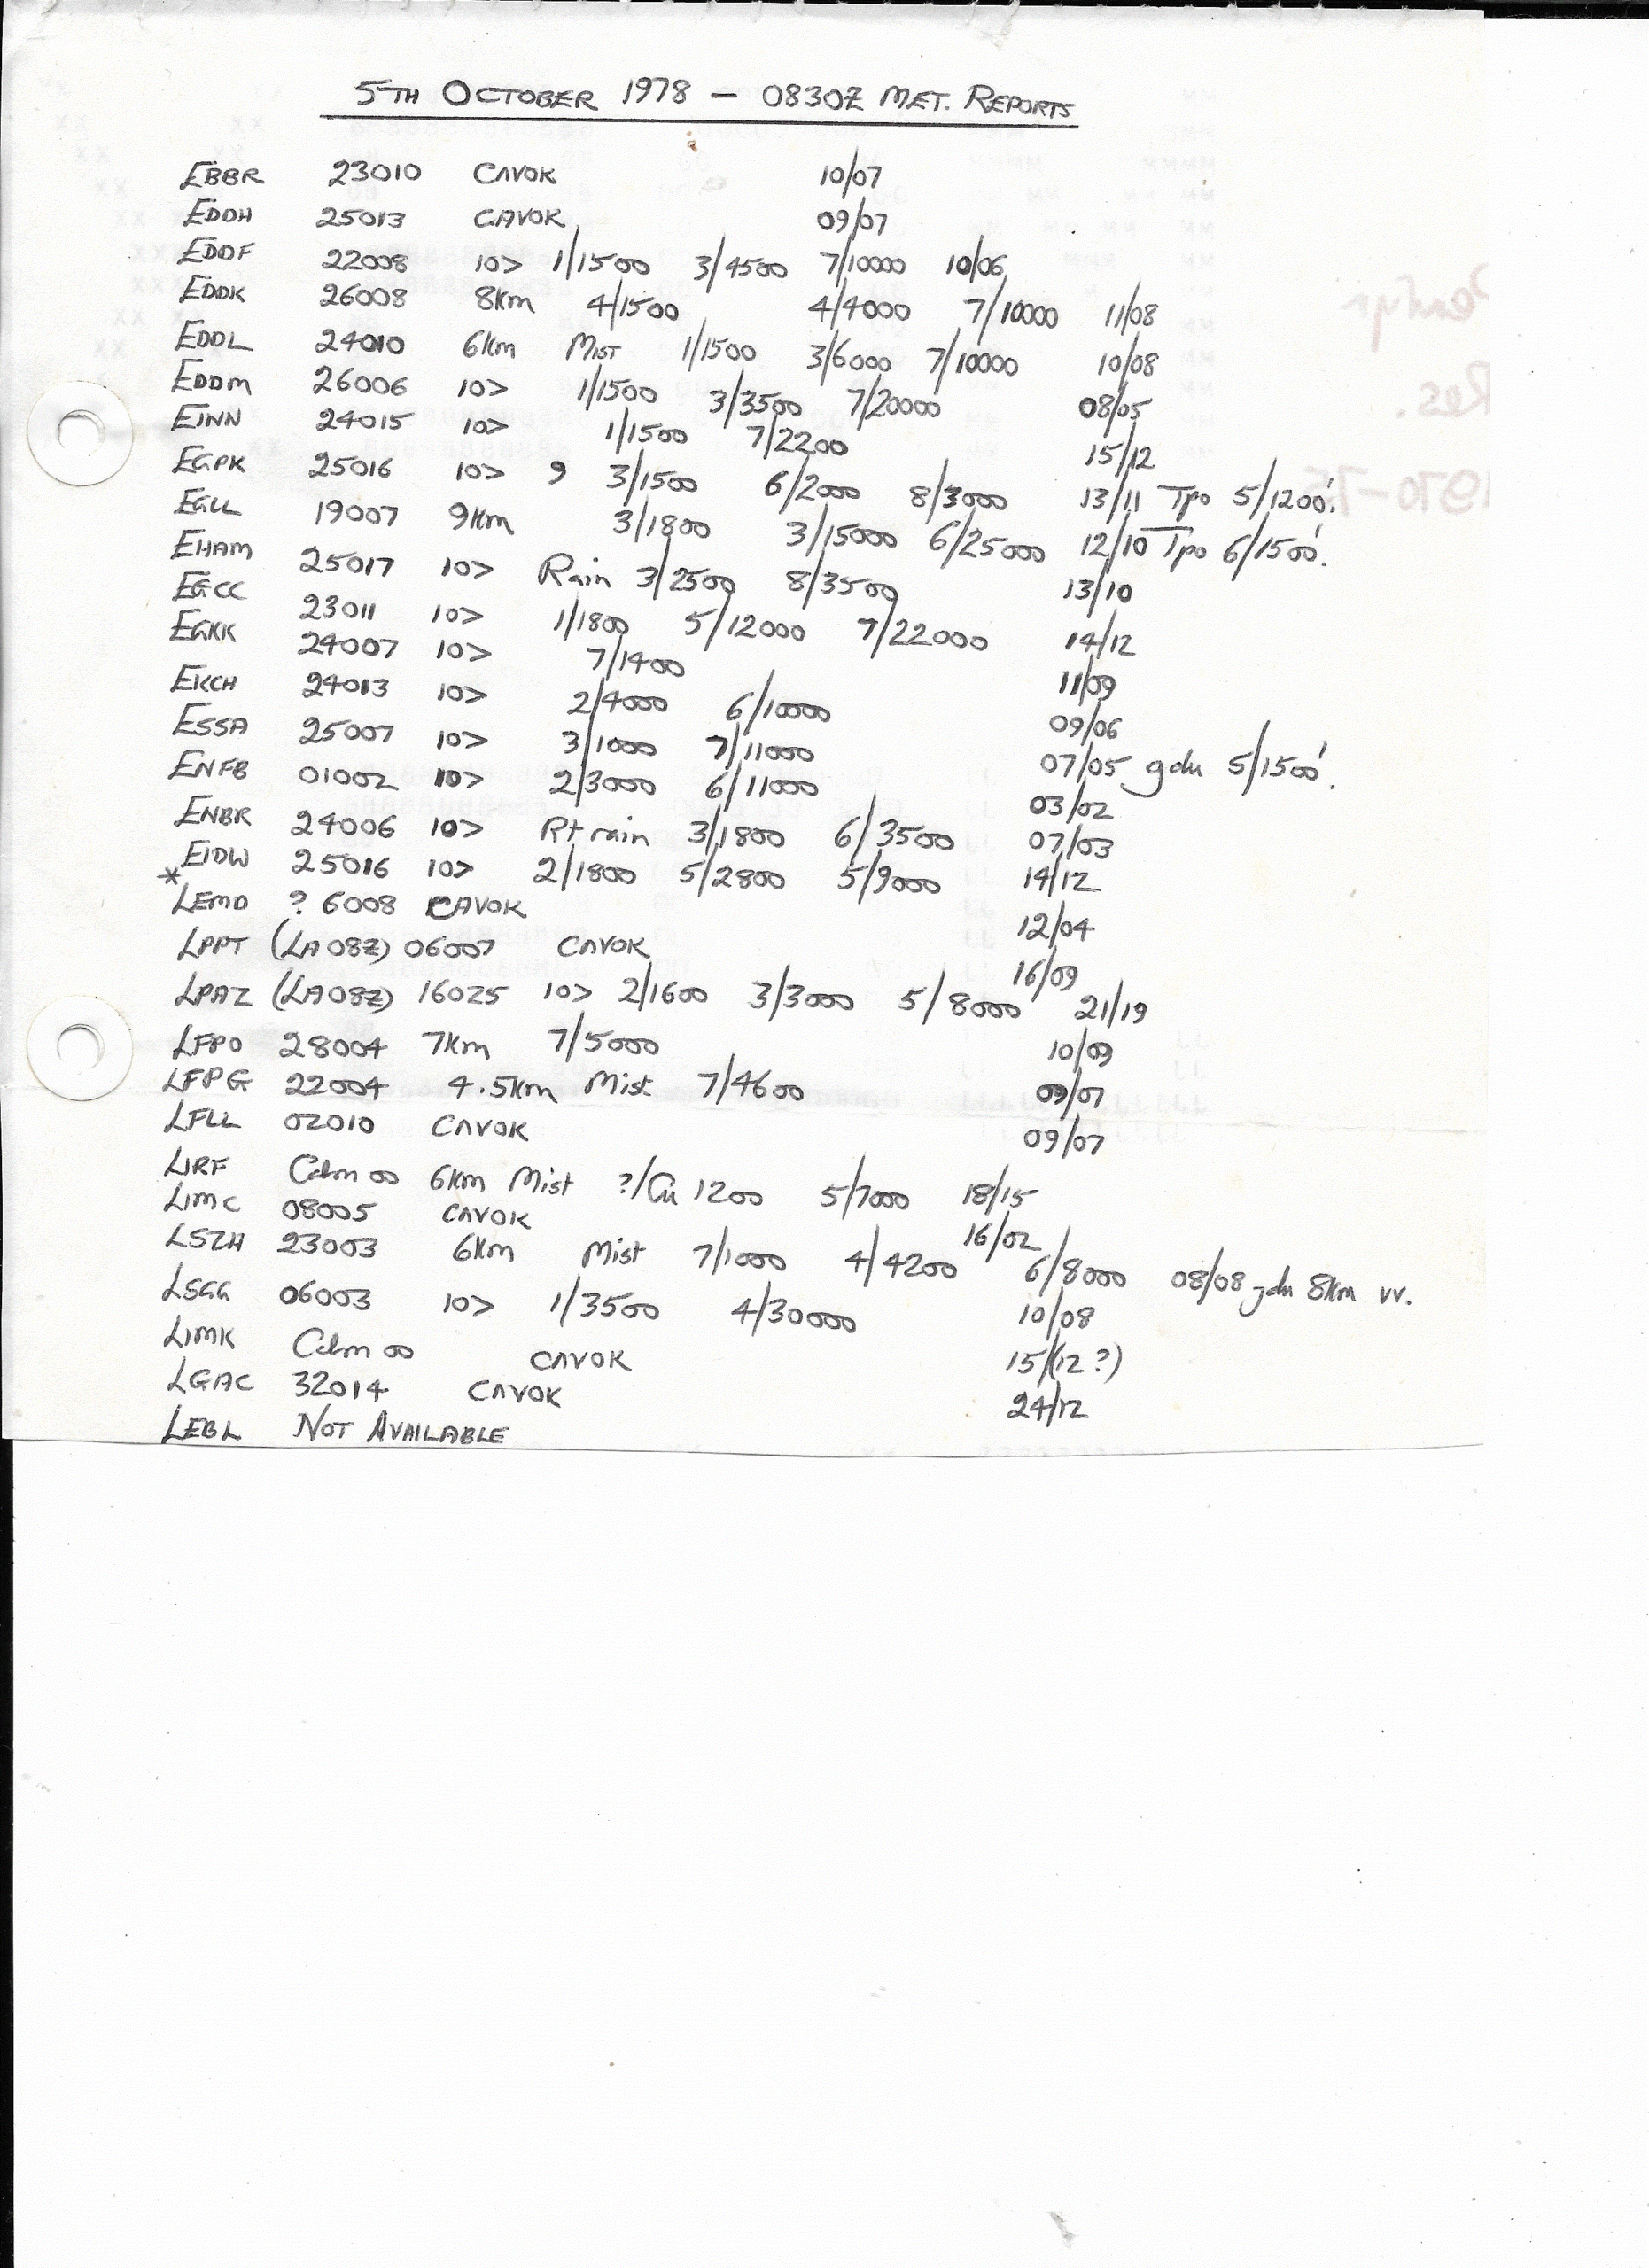 5TH OCTOBER 1978 – 0830Z MET. REPORTS
EBBR 23010 CAVOK 10/07
EDDH 25013 CAVOK 09/07
EDDF 22008 10> 1/1500 3/4500 7/10000 10/06
EDDK 26008 8km 4/1500 4/4000 7/10000 11/08
EDDL 24010 6km MIST 1/1500 3/6000 7/10000 10/08
EDDM 26006 10> 1/1500 3/3500 7/20000 08/05
EINN 24015 10> 1/1500 7/2200 15/12
EGPK 25016 10> 9 3/1500 6/2000 8/3000 13/11 Tpo 5/1200'.
EGLL 19007 9km 3/1800 3/15000 6/25000 12/10 Tpo 6/1500'.
EHAM 25017 10> Rain 3/2500 8/3500 13/10
EGCC 23011 10> 1/1800 5/12000 7/22000 14/12
EGKK 24007 10> 7/1400 11/09
EKCH 24013 10> 2/4000 6/10000 09/06
ESSA 25007 10> 3/1000 7/11000 07/05 gdu 5/1500'.
ENFB 01002 10> 2/3000 6/11000 03/02
ENBR 24006 10> Rt rain 3/1800 6/3500 07/03
EIDW 25016 10> 2/1800 5/2800 5/9000 14/12
* LEMD ? 6008 CAVOK 12/04
LPPT (LA08Z) 06007 CAVOK 16/09
LPAZ (LA08Z) 16025 10> 2/1600 3/3000 5/8000 21/19
LFPO 28004 7km 7/5000 10/09
LFPG 22004 4.5km Mist 7/4600 09/07
LFLL 02010 CAVOK 09/07
LIRF Calm 00 6km Mist ?/Cu 1200 5/7000 18/15
LIMC 08005 CAVOK 16/02
LSZH 23003 6km Mist 7/1000 4/4200 6/8000 08/08 gdu 8km vv.
LSGG 06003 10> 1/3500 4/30000 10/08
LIMK Calm 00 CAVOK 15/(12?)
LGAC 32014 CAVOK 24/12
LEBL NOT AVAILABLE